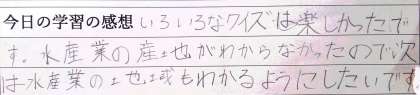 今日の学習の感想 いろいろなクイズは楽しかったで
す。水産業の産地がわからなかったので次
は水産業の土地域もわかるようにしたいです